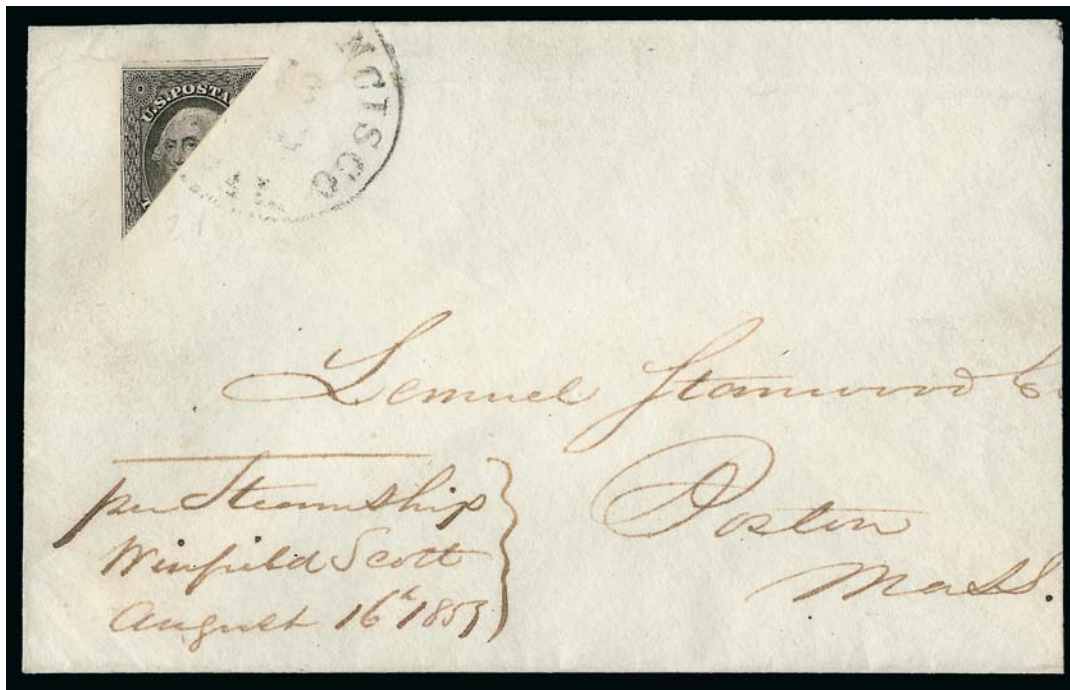 U.S. POSTA
NCISCO
CAL
Lemuel Stanwood E
Boston
Mass.
per Steam Ship
Winfield Scott
August 16th 1853